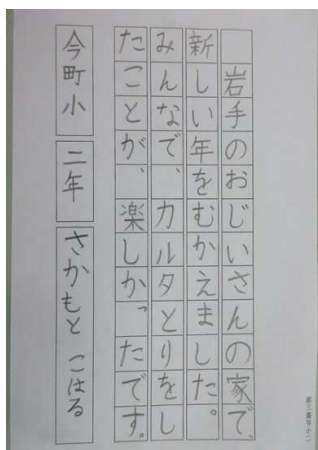 岩手のおじいさんの家で、
新しい年をむかえました。
みんなで、カルタとりをし
たことが、楽しかったです。
今町小 二年 さかもと こはる